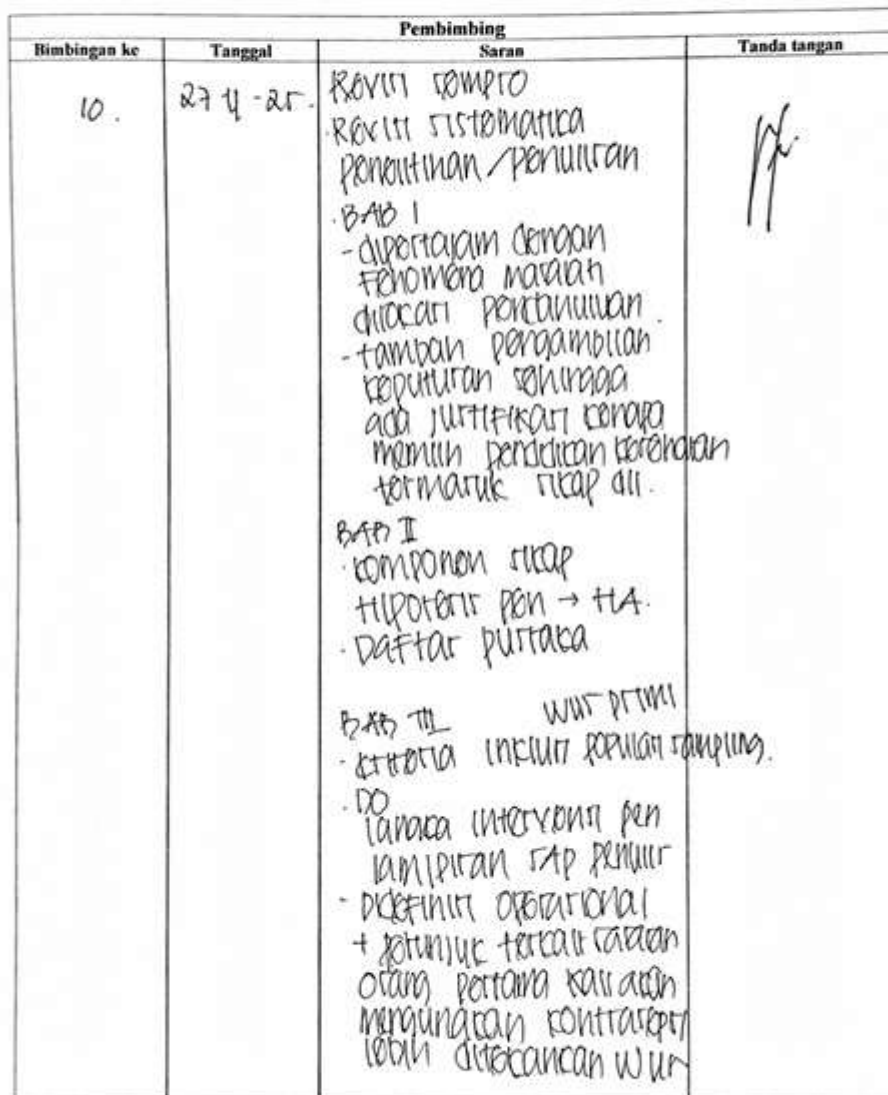 Pembimbing
Bimbingan ke Tanggal Saran Tanda tangan
10. 27 11 -25. Revisi sempro
Revisi sistematika
penelitihan/penulisan
BAB I
- dipertajam dengan
Fenomena masalah
dilokasi
- tambah pengambilan
keputusan sehingga
ada justifikasi kenapa
memilih pendidikan kesehatan
termasuk sikap dll.
BAB II
· komponen sikap
Hipotesis pen → HA.
· Daftar pustaka
BAB III WUS primi
· kriteria inklusi populasi sampling.
· DO
intervensi pen
lampiran SAP penulis
- Didefinisi operasional
+ petunjuk terkait
orang pertama kali akan
mengunakan kontrasepsi
lebih ditekancan WUS